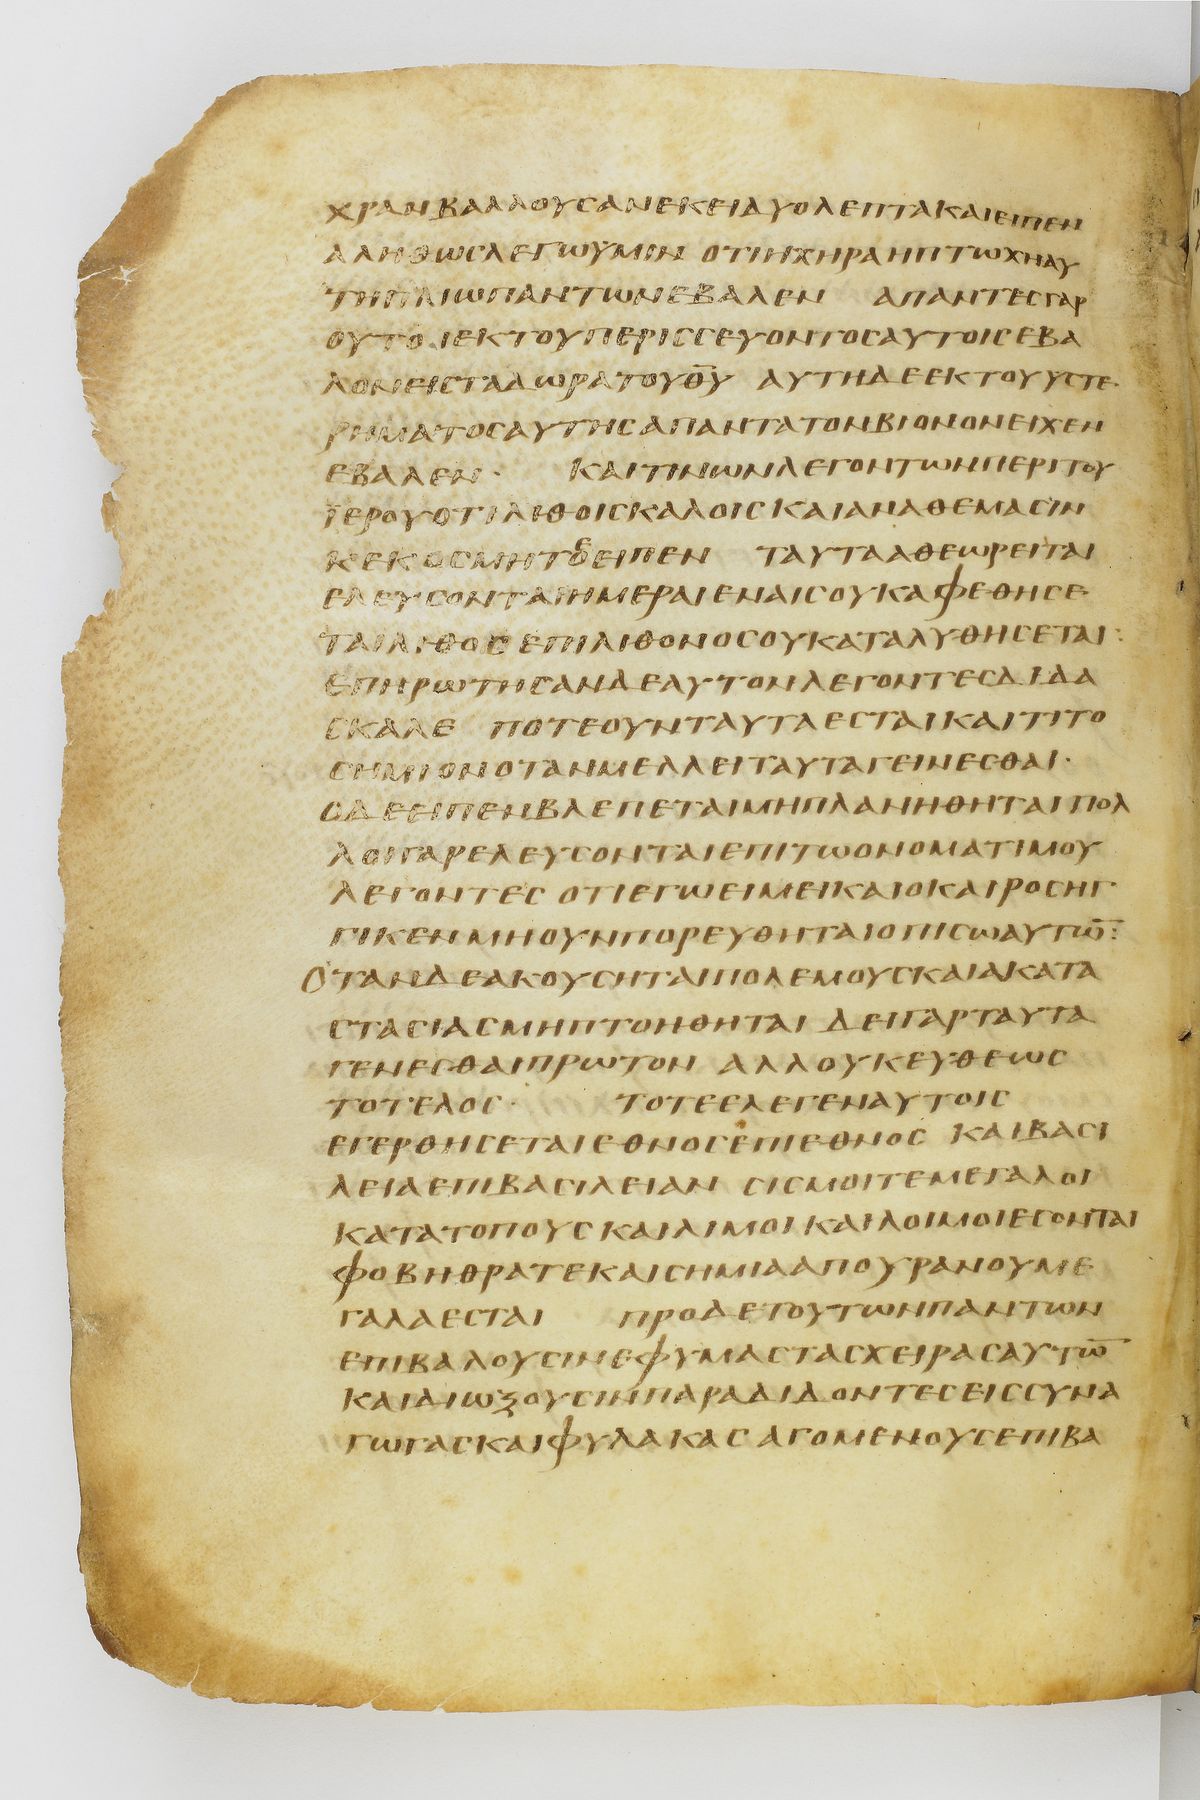 ΧΡΑΝΒΑΛΛΟΥΣΑΝΕΚΕΙΔΥΟΛΕΠΤΑΚΑΙΕΙΠΕΝ
ΑΛΗΘΩΣΛΕΓΩΥΜΙΝ ΟΤΙΗΧΗΡΑΗΠΤΩΧΗΑΥ
ΤΗΠΛΙΩΠΑΝΤΩΝΕΒΑΛΕΝ ΑΠΑΝΤΕΣΓΑΡ
ΟΥΤΟΙΕΚΤΟΥΠΕΡΙΣΣΕΥΟΝΤΟΣΑΥΤΟΙΣΕΒΑ
ΛΟΝΕΙΣΤΑΔΩΡΑΤΟΥΘ̅Υ̅ ΑΥΤΗΔΕΕΚΤΟΥΥΣΤΕ
ΡΗΜΑΤΟΣΑΥΤΗΣΑΠΑΝΤΑΤΟΝΒΙΟΝΟΝΕΙΧΕΝ
ΕΒΑΛΕΝ· ΚΑΙΤΙΝΩΝΛΕΓΟΝΤΩΝΠΕΡΙΤΟΥ
ΪΕΡΟΥΟΤΙΛΙΘΟΙΣΚΑΛΟΙΣΚΑΙΑΝΑΘΕΜΑΣΙΝ
ΚΕΚΟΣΜΗΤΕΕΙΠΕΝ ΤΑΥΤΑΑΘΕΩΡΕΙΤΑΙ
ΕΛΕΥΣΟΝΤΑΙΗΜΕΡΑΙΕΝΑΙΣΟΥΚΑΦΕΘΗΣΕ
ΤΑΙΛΙΘΟΣΕΠΙΛΙΘΟΝΟΣΟΥΚΑΤΑΛΥΘΗΣΕΤΑΙ:
ΕΠΗΡΩΤΗΣΑΝΔΕΑΥΤΟΝΛΕΓΟΝΤΕΣΔΙΔΑ
ΣΚΑΛΕ ΠΟΤΕΟΥΝΤΑΥΤΑΕΣΤΑΙΚΑΙΤΙΤΟ
ΣΗΜΙΟΝΟΤΑΝΜΕΛΛΕΙΤΑΥΤΑΓΕΙΝΕΣΘΑΙ·
ΟΔΕΕΙΠΕΝΒΛΕΠΕΤΑΙΜΗΠΛΑΝΗΘΗΤΑΙΠΟΛ
ΛΟΙΓΑΡΕΛΕΥΣΟΝΤΑΙΕΠΙΤΩΟΝΟΜΑΤΙΜΟΥ
ΛΕΓΟΝΤΕΣ ΟΤΙΕΓΩΕΙΜΕΙΚΑΙΟΚΑΙΡΟΣΗΓ
ΓΙΚΕΝΜΗΟΥΝΠΟΡΕΥΘΗΤΑΙΟΠΙΣΩΑΥΤΩ̅:
ΟΤΑΝΔΕΑΚΟΥΣΗΤΑΙΠΟΛΕΜΟΥΣΚΑΙΑΚΑΤΑ
ΣΤΑΣΙΑΣΜΗΠΤΟΗΘΗΤΑΙ ΔΕΙΓΑΡΤΑΥΤΑ
ΓΕΝΕΣΘΑΙΠΡΩΤΟΝ ΑΛΛΟΥΚΕΥΘΕΩΣ
ΤΟΤΕΛΟΣ· ΤΟΤΕΕΛΕΓΕΝΑΥΤΟΙΣ
ΕΓΕΡΘΗΣΕΤΑΙΕΘΝΟΣΕΠΙΕΘΝΟΣ ΚΑΙΒΑΣΙ
ΛΕΙΑΕΠΙΒΑΣΙΛΕΙΑΝ ΣΙΣΜΟΙΤΕΜΕΓΑΛΟΙ
ΚΑΤΑΤΟΠΟΥΣΚΑΙΛΙΜΟΙΚΑΙΛΟΙΜΟΙΕΣΟΝΤΑΙ
ΦΟΒΗΘΡΑΤΕΚΑΙΣΗΜΙΑΑΠΟΥΡΑΝΟΥΜΕ
ΓΑΛΑΕΣΤΑΙ ΠΡΟΔΕΤΟΥΤΩΝΠΑΝΤΩΝ
ΕΠΙΒΑΛΟΥΣΙΝΕΦΥΜΑΣΤΑΣΧΕΙΡΑΣΑΥΤΩ̅
ΚΑΙΔΙΩΞΟΥΣΙΝΠΑΡΑΔΙΔΟΝΤΕΣΕΙΣΣΥΝΑ
ΓΩΓΑΣΚΑΙΦΥΛΑΚΑΣΑΓΟΜΕΝΟΥΣΕΠΙΒΑ